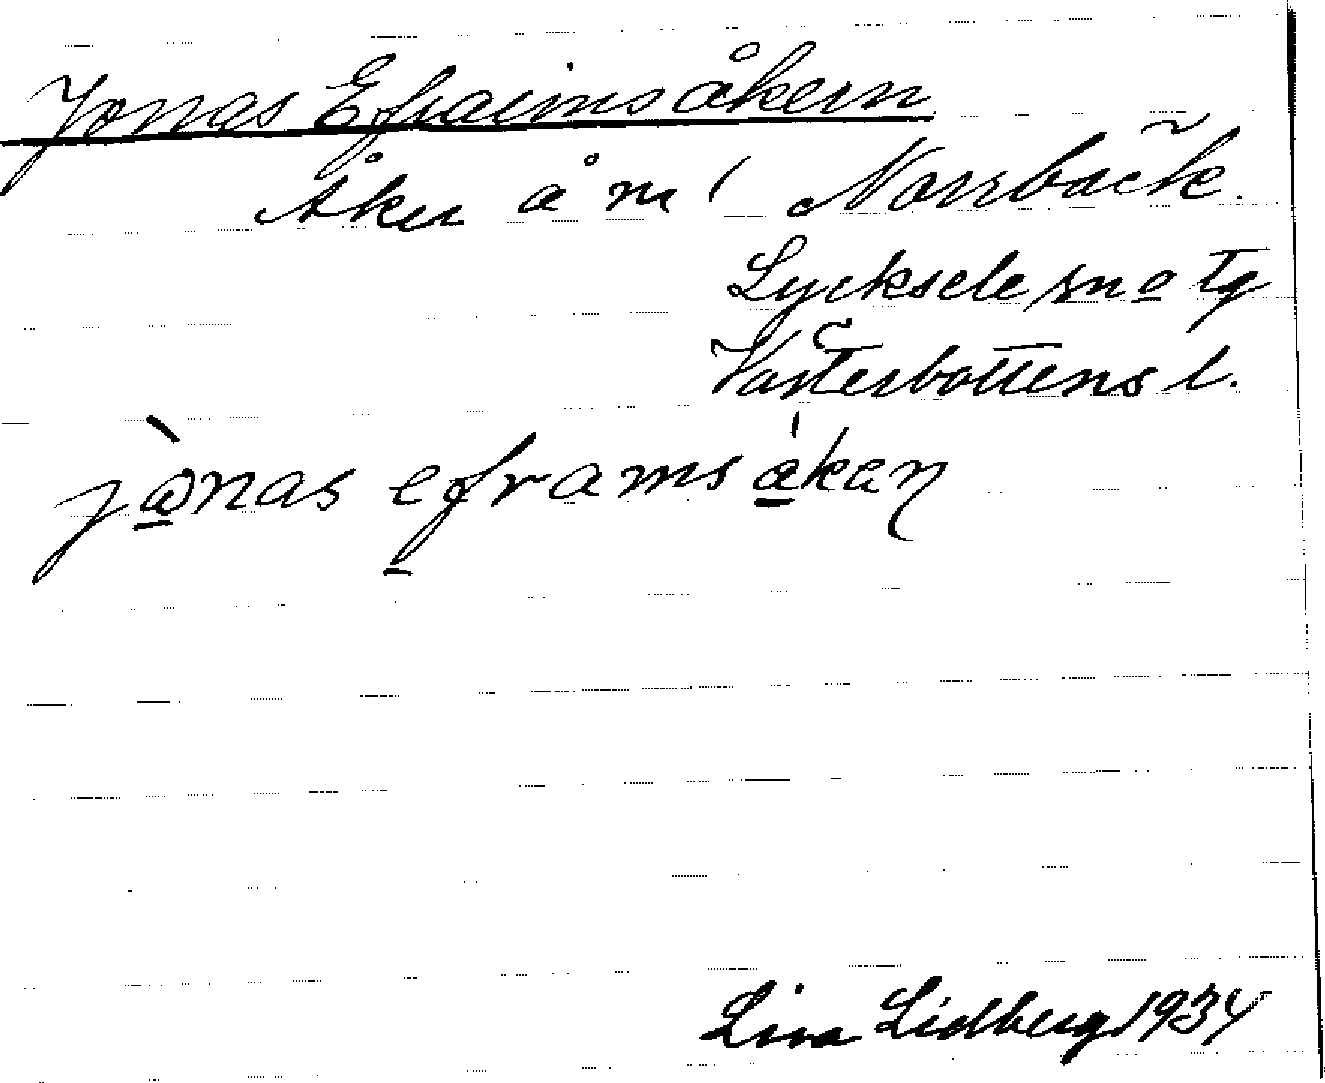 Jonas Efraimsåkern
Åker å n. Norrbäck.
Lycksele sn o tg
Västerbottens l.
jònas eframsåkeɳ
Lina Lidberg 1934